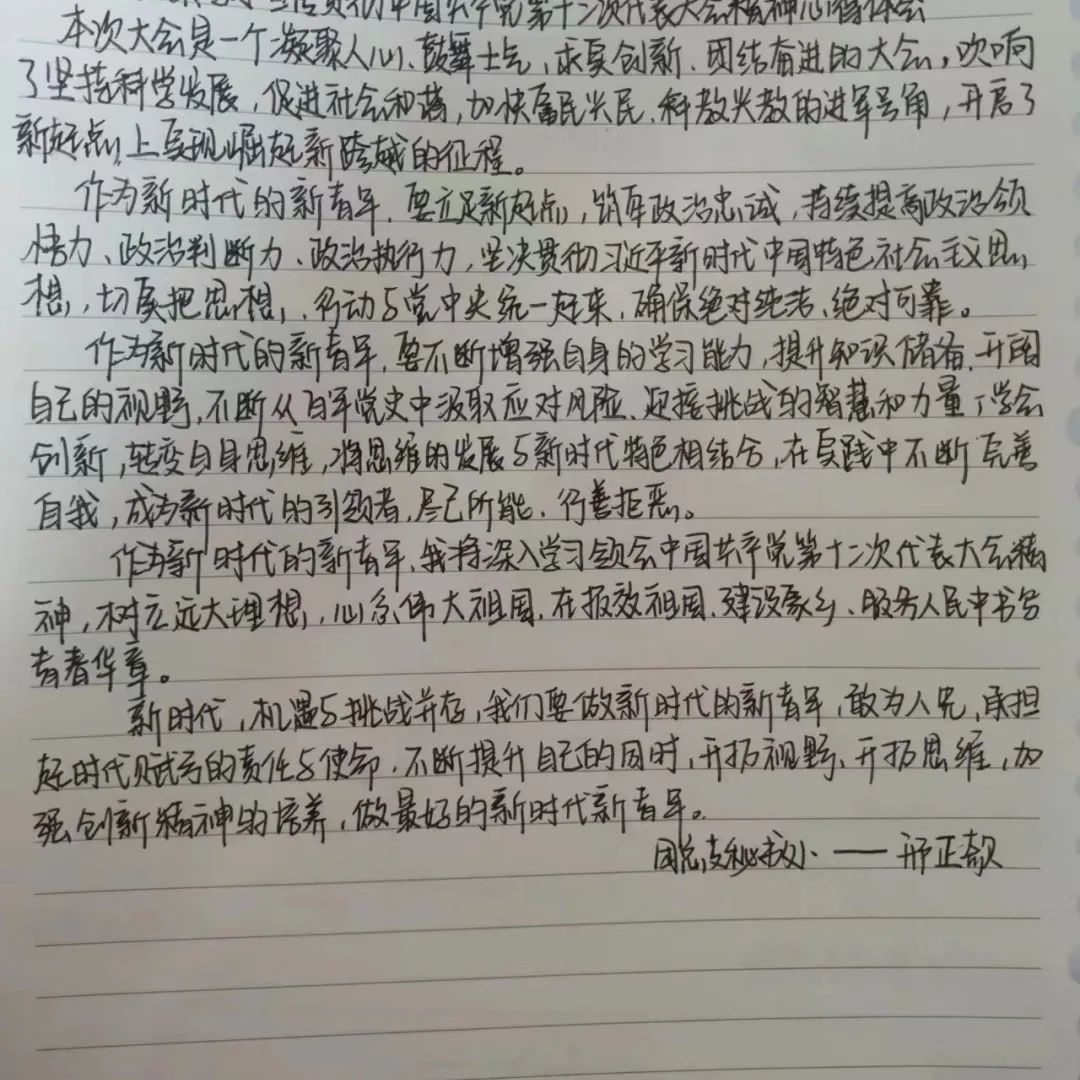 贯彻中国共产党第十二次代表大会精神心得体会
本次大会是一个凝聚人心、鼓舞士气、求真创新、团结奋进的大会，吹响
了坚持科学发展，促进社会和谐，加快富民兴民、科教兴教的进军号角，开启了
新起点上实现崛起新跨越的征程。
作为新时代的新青年，要立足新起点，铸牢政治忠诚，持续提高政治领
悟力、政治判断力、政治执行力，坚决贯彻习近平新时代中国特色社会主义思
想，切实把思想、行动与党中央统一起来，确保绝对纯洁、绝对可靠。
作为新时代的新青年，要不断增强自身的学习能力，提升知识储备，开阔
自己的视野，不断从百年党史中汲取应对风险、迎接挑战的智慧和力量，学会
创新，转变自身思维，将思维的发展与新时代特色相结合，在实践中不断完善
自我，成为新时代的引领者，尽己所能，行善拒恶。
作为新时代的新青年，我将深入学习领会中国共产党第十二次代表大会精
神，树立远大理想，心系伟大祖国，在报效祖国、建设家乡、服务人民中书写
青春华章。
新时代，机遇与挑战并存，我们要做新时代的新青年，敢为人先，承担
起时代赋予的责任与使命，不断提升自己的同时，开拓视野、开拓思维，加
强创新精神的培养，做最好的新时代新青年。
团总支秘书处——邢正